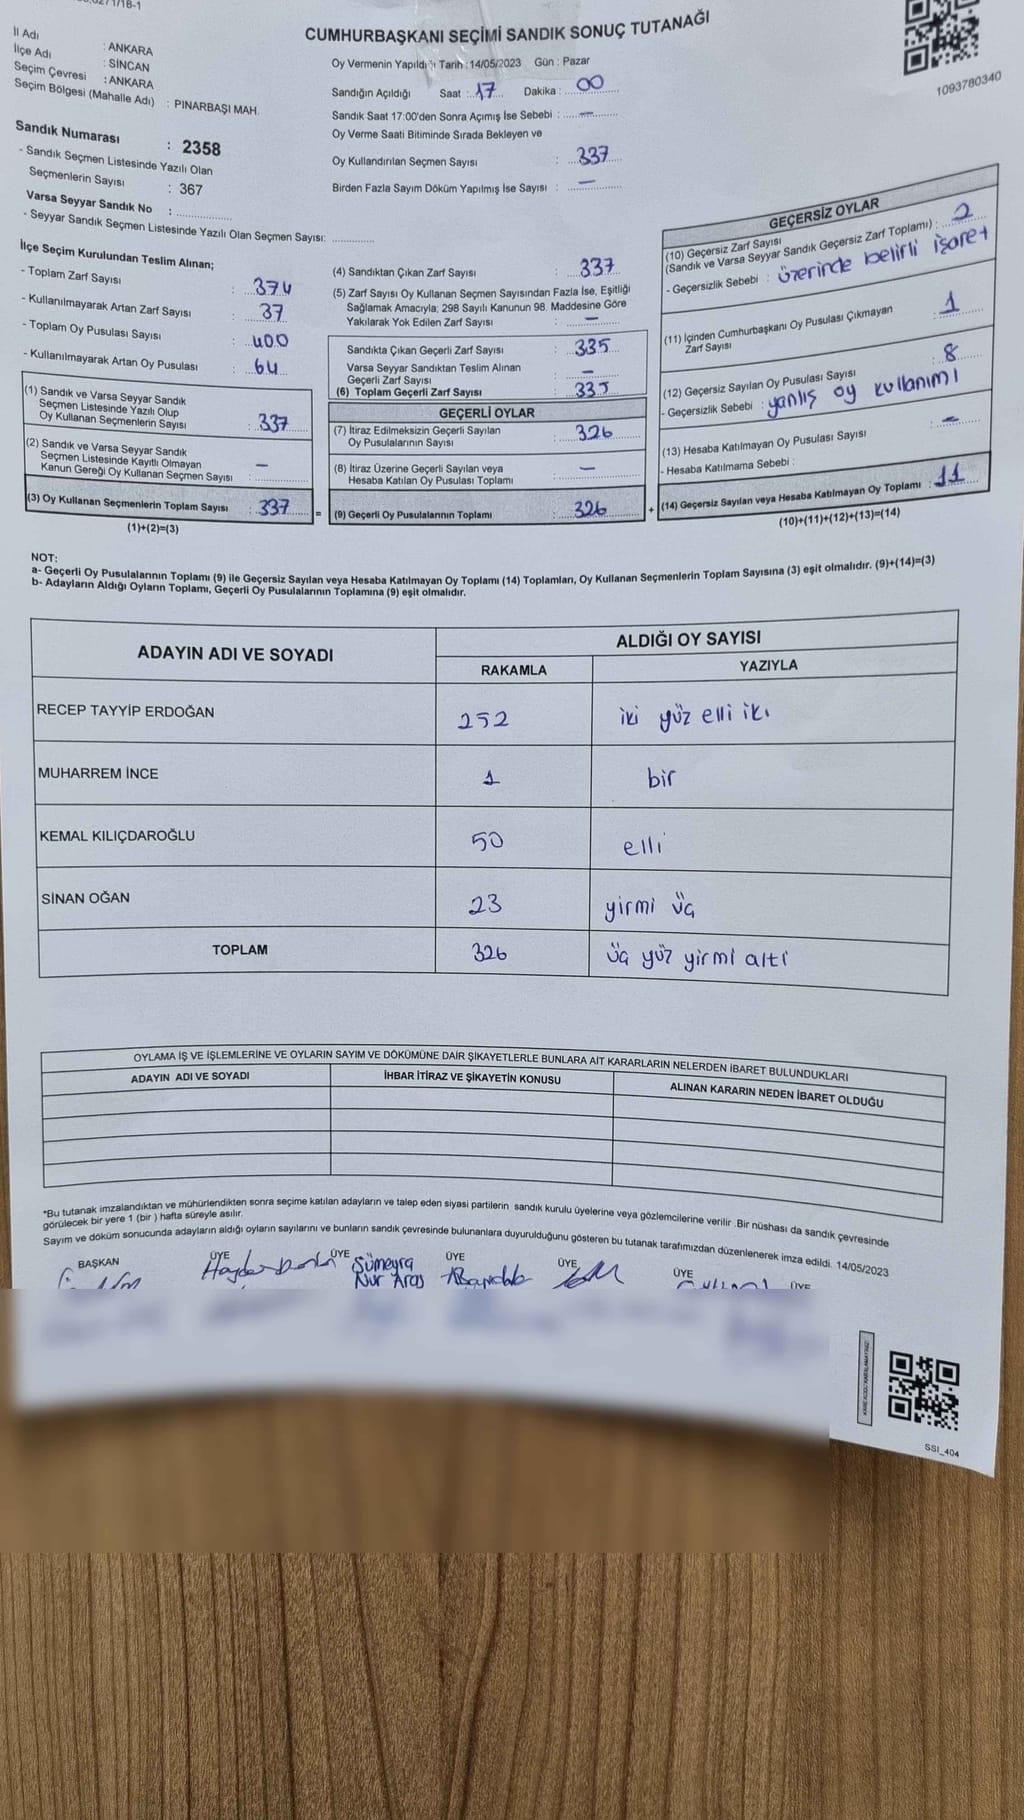 CUMHURBAŞKANI SEÇİMİ SANDIK SONUÇ TUTANAĞI
İl Adı : ANKARA
İlçe Adı : SİNCAN
Seçim Çevresi : ANKARA
Seçim Bölgesi (Mahalle Adı) : PINARBAŞI MAH.
Sandık Numarası : 2358
- Sandık Seçmen Listesinde Yazılı Olan
Seçmenlerin Sayısı : 367
Varsa Seyyar Sandık No :
- Seyyar Sandık Seçmen Listesinde Yazılı Olan Seçmen Sayısı:
Oy Vermenin Yapıldığı Tarih :14/05/2023 Gün : Pazar
Sandığın Açıldığı Saat : 17 Dakika : 00
Sandık Saat 17:00'den Sonra Açımış İse Sebebi : —
Oy Verme Saati Bitiminde Sırada Bekleyen ve
Oy Kullandırılan Seçmen Sayısı : 337
Birden Fazla Sayım Döküm Yapılmış İse Sayısı : —
1093780340
İlçe Seçim Kurulundan Teslim Alınan;
- Toplam Zarf Sayısı : 374
- Kullanılmayarak Artan Zarf Sayısı : 37
- Toplam Oy Pusulası Sayısı : 400
- Kullanılmayarak Artan Oy Pusulası : 64
(1) Sandık ve Varsa Seyyar Sandık
Seçmen Listesinde Yazılı Olup
Oy Kullanan Seçmenlerin Sayısı : 337
(2) Sandık ve Varsa Seyyar Sandık
Seçmen Listesinde Kayıtlı Olmayan
Kanun Gereği Oy Kullanan Seçmen Sayısı : —
(3) Oy Kullanan Seçmenlerin Toplam Sayısı : 337
(1)+(2)=(3)
(4) Sandıktan Çıkan Zarf Sayısı : 337
(5) Zarf Sayısı Oy Kullanan Seçmen Sayısından Fazla İse, Eşitliği
Sağlamak Amacıyla; 298 Sayılı Kanunun 98. Maddesine Göre
Yakılarak Yok Edilen Zarf Sayısı : —
Sandıkta Çıkan Geçerli Zarf Sayısı : 335
Varsa Seyyar Sandıktan Teslim Alınan
Geçerli Zarf Sayısı : —
(6) Toplam Geçerli Zarf Sayısı : 335
GEÇERLİ OYLAR
(7) İtiraz Edilmeksizin Geçerli Sayılan
Oy Pusulalarının Sayısı : 326
(8) İtiraz Üzerine Geçerli Sayılan veya
Hesaba Katılan Oy Pusulası Toplamı : —
= (9) Geçerli Oy Pusulalarının Toplamı : 326
GEÇERSİZ OYLAR
(10) Geçersiz Zarf Sayısı
(Sandık ve Varsa Seyyar Sandık Geçersiz Zarf Toplamı) : 2
- Geçersizlik Sebebi : üzerinde belirli işaret
(11) İçinden Cumhurbaşkanı Oy Pusulası Çıkmayan
Zarf Sayısı : 1
(12) Geçersiz Sayılan Oy Pusulası Sayısı : 8
- Geçersizlik Sebebi : yanlış oy kullanımı
(13) Hesaba Katılmayan Oy Pusulası Sayısı : —
- Hesaba Katılmama Sebebi :
+ (14) Geçersiz Sayılan veya Hesaba Katılmayan Oy Toplamı : 11
(10)+(11)+(12)+(13)=(14)
NOT:
a- Geçerli Oy Pusulalarının Toplamı (9) ile Geçersiz Sayılan veya Hesaba Katılmayan Oy Toplamı (14) Toplamları, Oy Kullanan Seçmenlerin Toplam Sayısına (3) eşit olmalıdır. (9)+(14)=(3)
b- Adayların Aldığı Oyların Toplamı, Geçerli Oy Pusulalarının Toplamına (9) eşit olmalıdır.
ADAYIN ADI VE SOYADI ALDIĞI OY SAYISI
RAKAMLA YAZIYLA
RECEP TAYYİP ERDOĞAN 252 iki yüz elli iki
MUHARREM İNCE 1 bir
KEMAL KILIÇDAROĞLU 50 elli
SİNAN OĞAN 23 yirmi üç
TOPLAM 326 üç yüz yirmi altı
OYLAMA İŞ VE İŞLEMLERİNE VE OYLARIN SAYIM VE DÖKÜMÜNE DAİR ŞİKAYETLERLE BUNLARA AİT KARARLARIN NELERDEN İBARET BULUNDUKLARI
ADAYIN ADI VE SOYADI İHBAR İTİRAZ VE ŞİKAYETİN KONUSU ALINAN KARARIN NEDEN İBARET OLDUĞU
*Bu tutanak imzalandıktan ve mühürlendikten sonra seçime katılan adayların ve talep eden siyasi partilerin sandık kurulu üyelerine veya gözlemcilerine verilir .Bir nüshası da sandık çevresinde
görülecek bir yere 1 (bir ) hafta süreyle asılır.
Sayım ve döküm sonucunda adayların aldığı oyların sayılarını ve bunların sandık çevresinde bulunanlara duyurulduğunu gösteren bu tutanak tarafımızdan düzenlenerek imza edildi. 14/05/2023
BAŞKAN ÜYE ÜYE ÜYE ÜYE ÜYE ÜYE
Sümeyra
Nur Aras
SSI_404